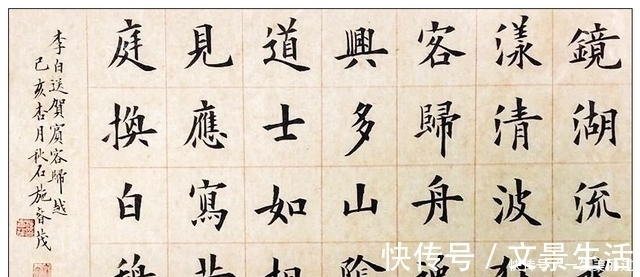 鏡湖流
漾清波
客歸舟
興多山
道士如
見應寫
庭換白
李白送賀賓客歸越
己亥杏月秋石施春茂
快传号 / 文景生活